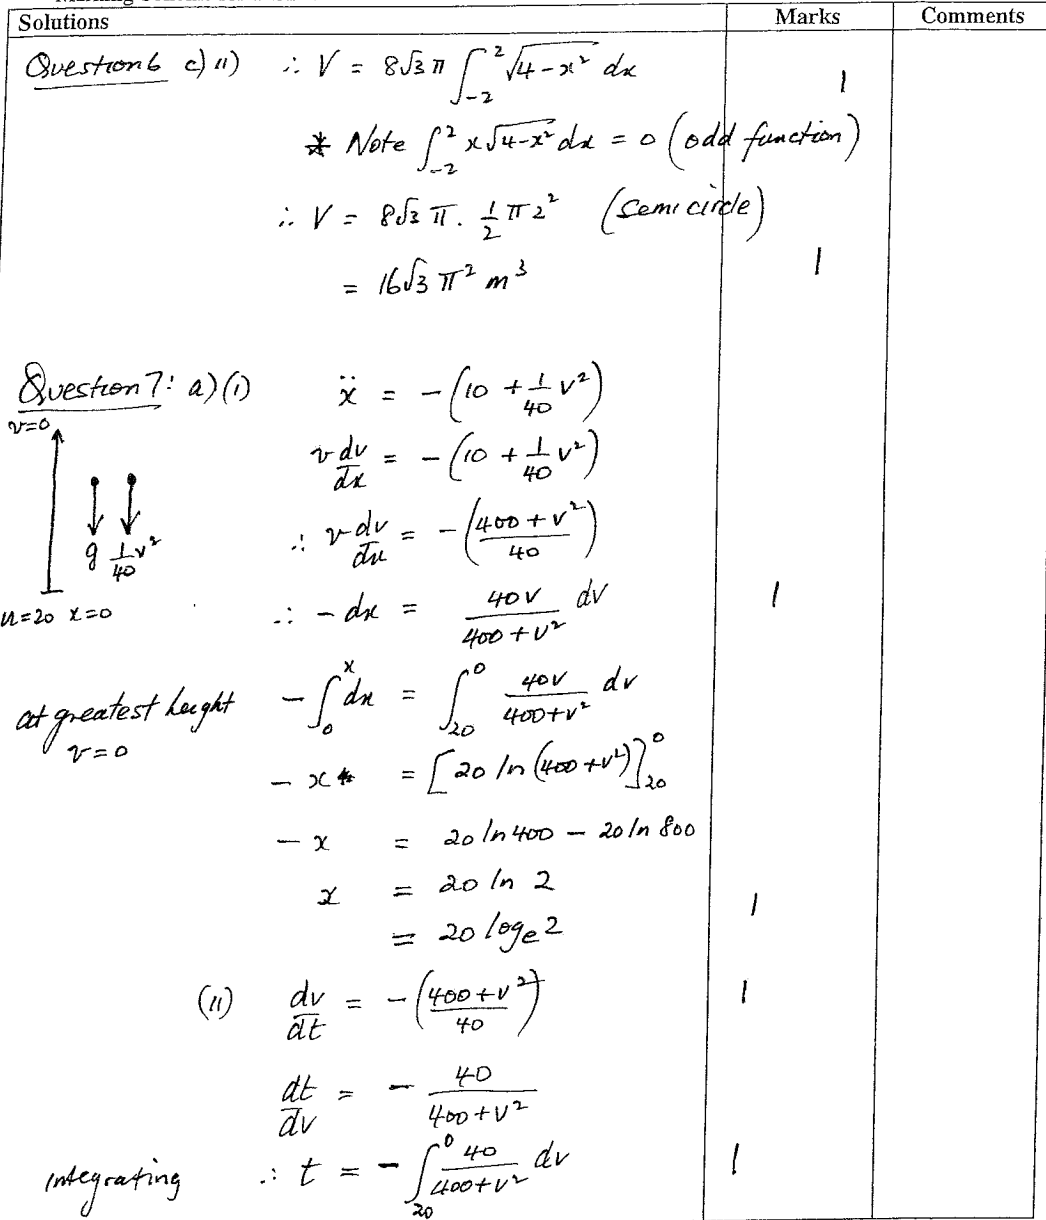 Solutions Marks Comments
Question 6 c) ii) ∴ V = 8√3 π ∫_{-2}^{2} √(4-x²) dx 1
* Note ∫_{-2}^{2} x√(4-x²) dx = 0 (odd function)
∴ V = 8√3 π . ½ π 2² (semi circle)
= 16√3 π² m³ 1
Question 7: a) (i) ẍ = -(10 + 1/40 v²)
v=0
v dv/dx = -(10 + 1/40 v²)
g 1/40 v²
∴ v dv/dx = -((400 + v²)/40)
u=20 x=0
∴ - dx = 40v/(400 + v²) dv 1
at greatest height - ∫_0^x dx = ∫_{20}^0 40v/(400+v²) dv
v=0
- x = [20 ln (400 + v²)]_{20}^0
- x = 20 ln 400 - 20 ln 800
x = 20 ln 2 1
= 20 logₑ 2
(ii) dv/dt = -((400 + v²)/40) 1
dt/dv = - 40/(400 + v²)
integrating ∴ t = - ∫_{20}^0 40/(400+v²) dv 1